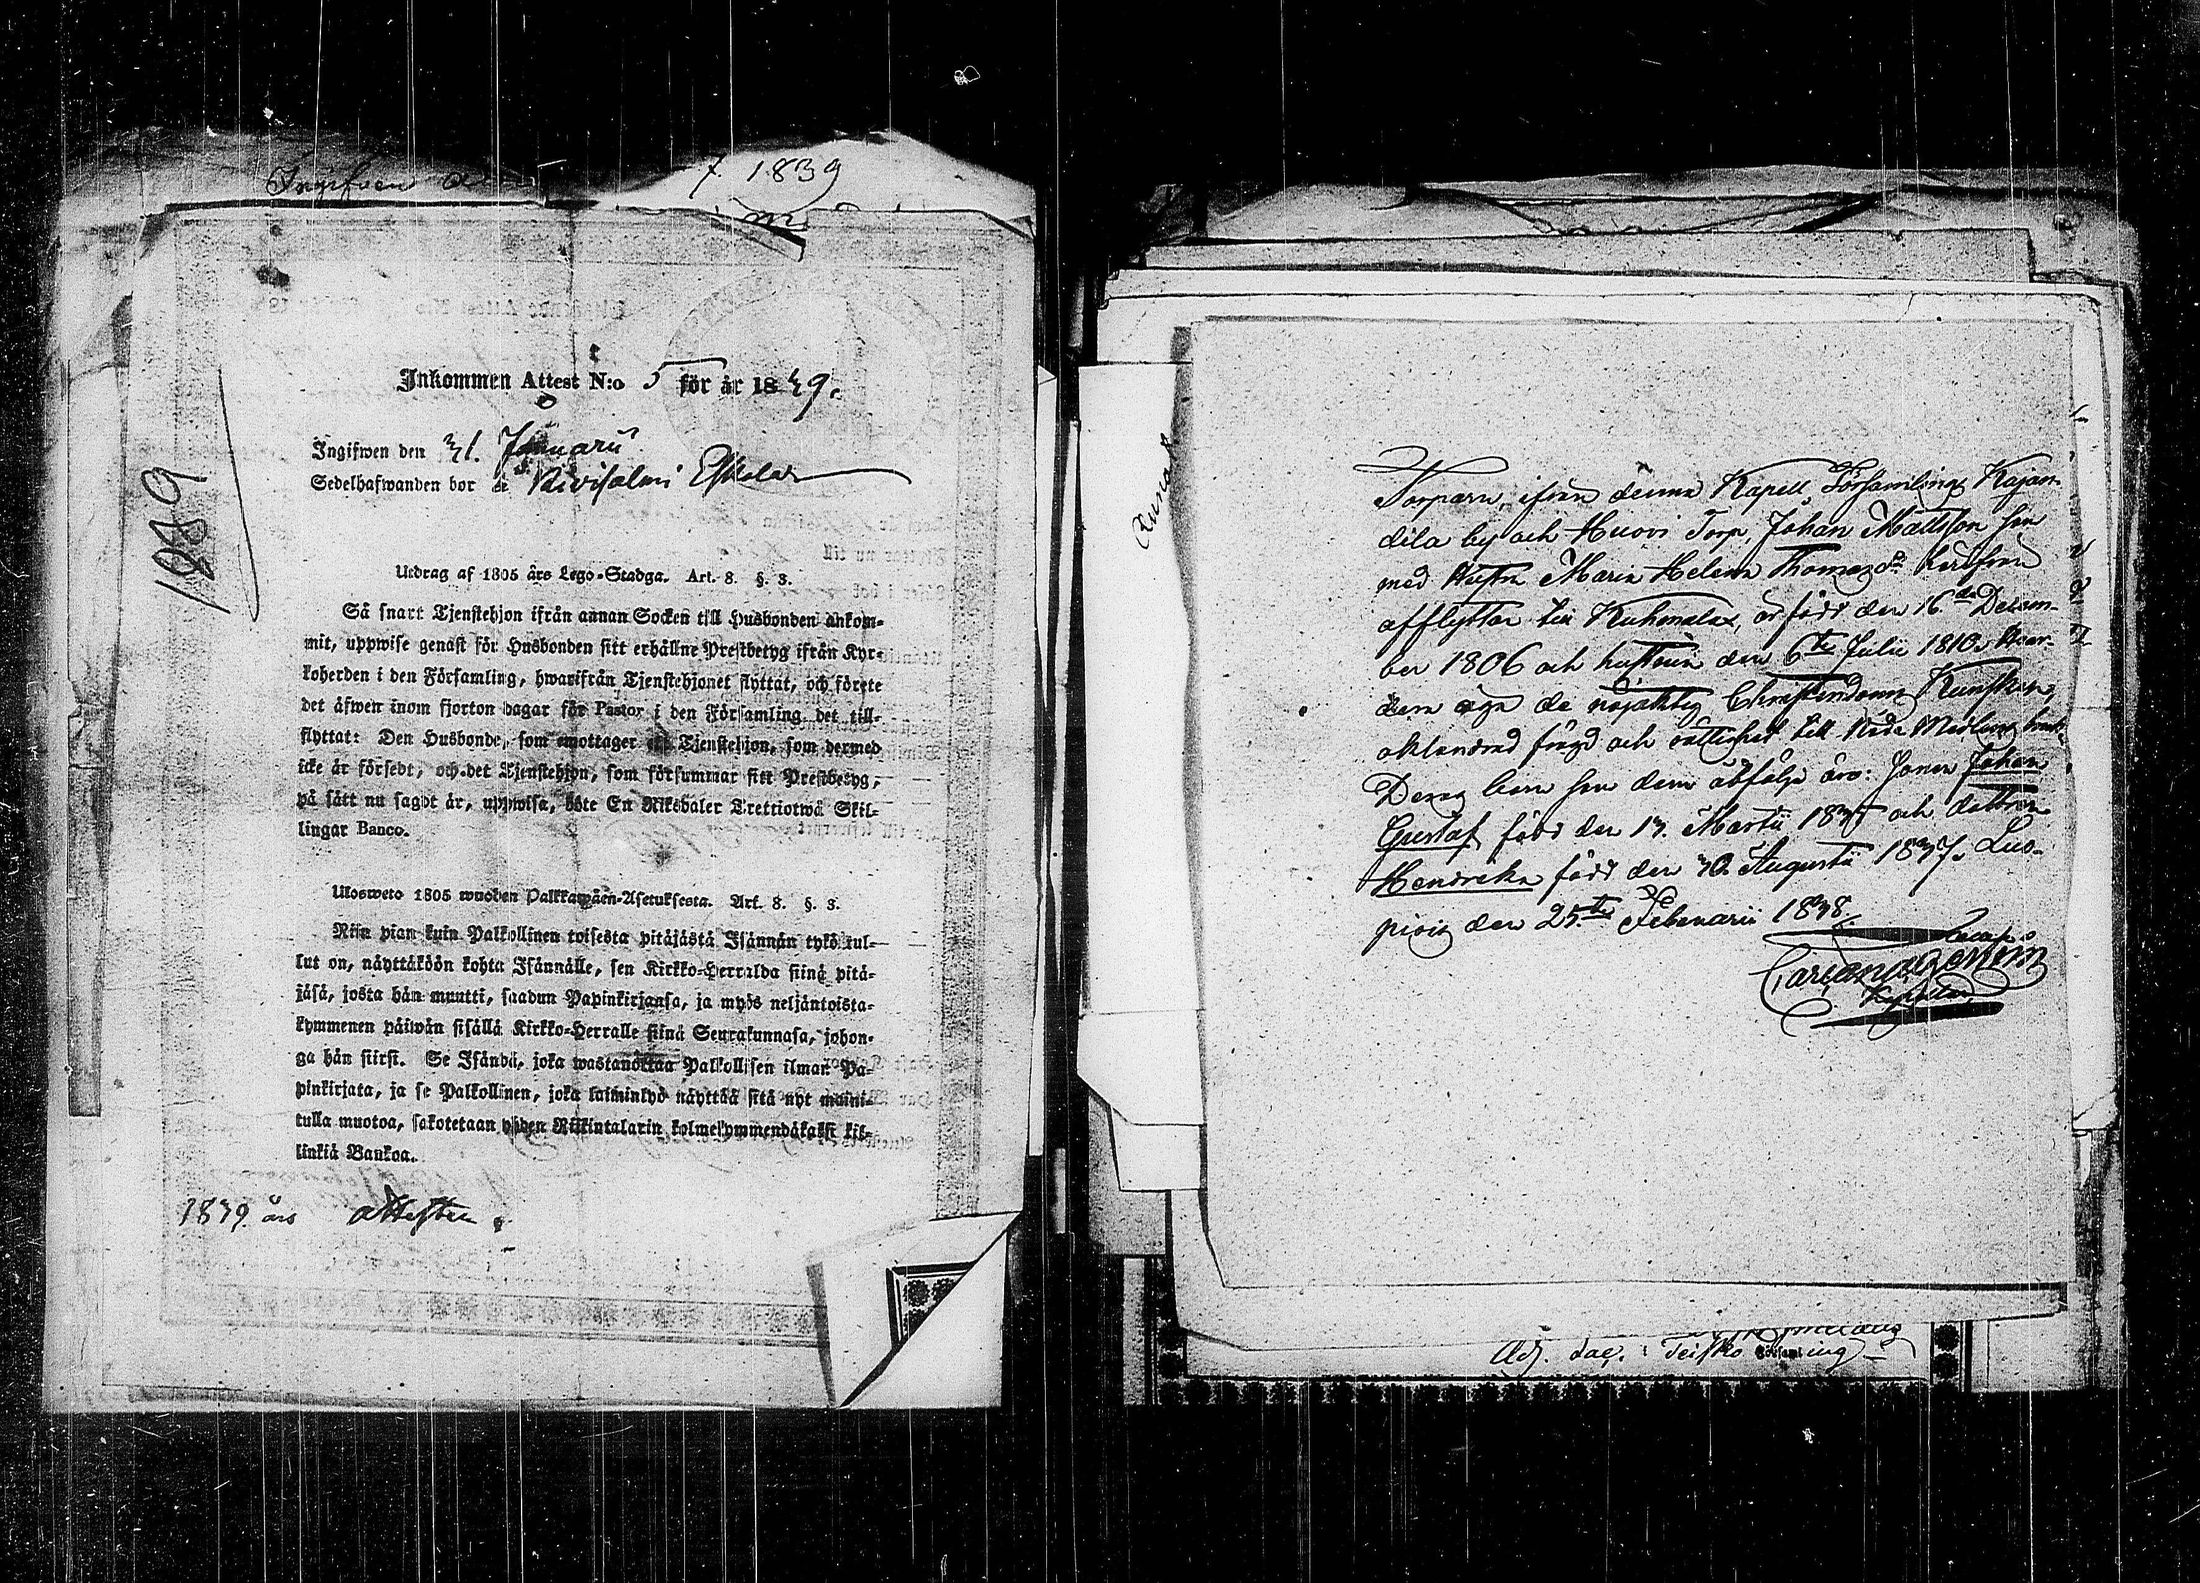 7. 1839
1839
Inkommen Attest N:o 5 för år 1839.
Ingifwen den 31. Januarii
Sedelhafwanden bor i Kivisalmi Eskola
Utdrag af 1805 års Lego-Stadga. Art. 8. §. 3.
Så snart Tjenstehjon ifrån annan Socken till Husbonden ankom-
mit, uppwise genast för Husbonden sitt erhållne Prestbetyg ifrån Kyr-
koherden i den Församling, hwarifrån Tjenstehjonet flyttat, och förete
det äfwen inom fjorton dagar för Pastor i den Församling det till-
flyttat: Den Husbonde, som emottager ett Tjenstehjon, som dermed
icke är försedt, och det Tjenstehjon, som försummar sitt Prestbetyg,
på sätt nu sagdt är, uppwisa, böte En Riksdaler Trettiotwå Skil-
lingar Banco.
Ulosweto 1805 wuoden Palkkawäen-Asetuksesta. Art. 8. §. 3.
Niin pian kuin Palkollinen toisesta pitäjästä Isännän tykö tul-
lut on, näyttäköön kohta Isännälle, sen Kirkko-Herralda siinä pitä-
jäsä, josta hän muutti, saadun Papinkirjansa, ja myös neljäntoista-
kymmenen päiwän sisällä Kirkko-Herralle siinä Seurakunnasa, johon-
ga hän siirsi. Se Isändä, joka wastanottaa Palkollisen ilman Pa-
pinkirjata, ja se Palkollinen, joka laiminlyö näyttää sitä nyt maini-
tulla muotoa, sakotetaan yhden Riikintalarin kolmekymmendäkaksi kil-
linkiä Bankoa.
1839 års attester.
Torparn, ifrån denna Kapell Församlings Kajan-
dila by och Huovi Torp, Johan Mattsson som
med Hustru Maria Helena Thomasdr härifrån
afflyttar till Kuhmalax, är född den 16de Decem-
ber 1806 och hustrun den 6te Julii 1810.
dem äga de nöjaktig Christendoms Kunskap,
oklandrad frägd och rättighet till Nåde Medlens bruk.
Deras barn som dem åtfölja äro: Sonen Johan
Gustaf född den 13. Martii 1835 och dottren
Hendrika född den 30 Augustii 1837. Luo-
piois den 25te Februarii 1838.
Adj. Sac. i Teisko Församling